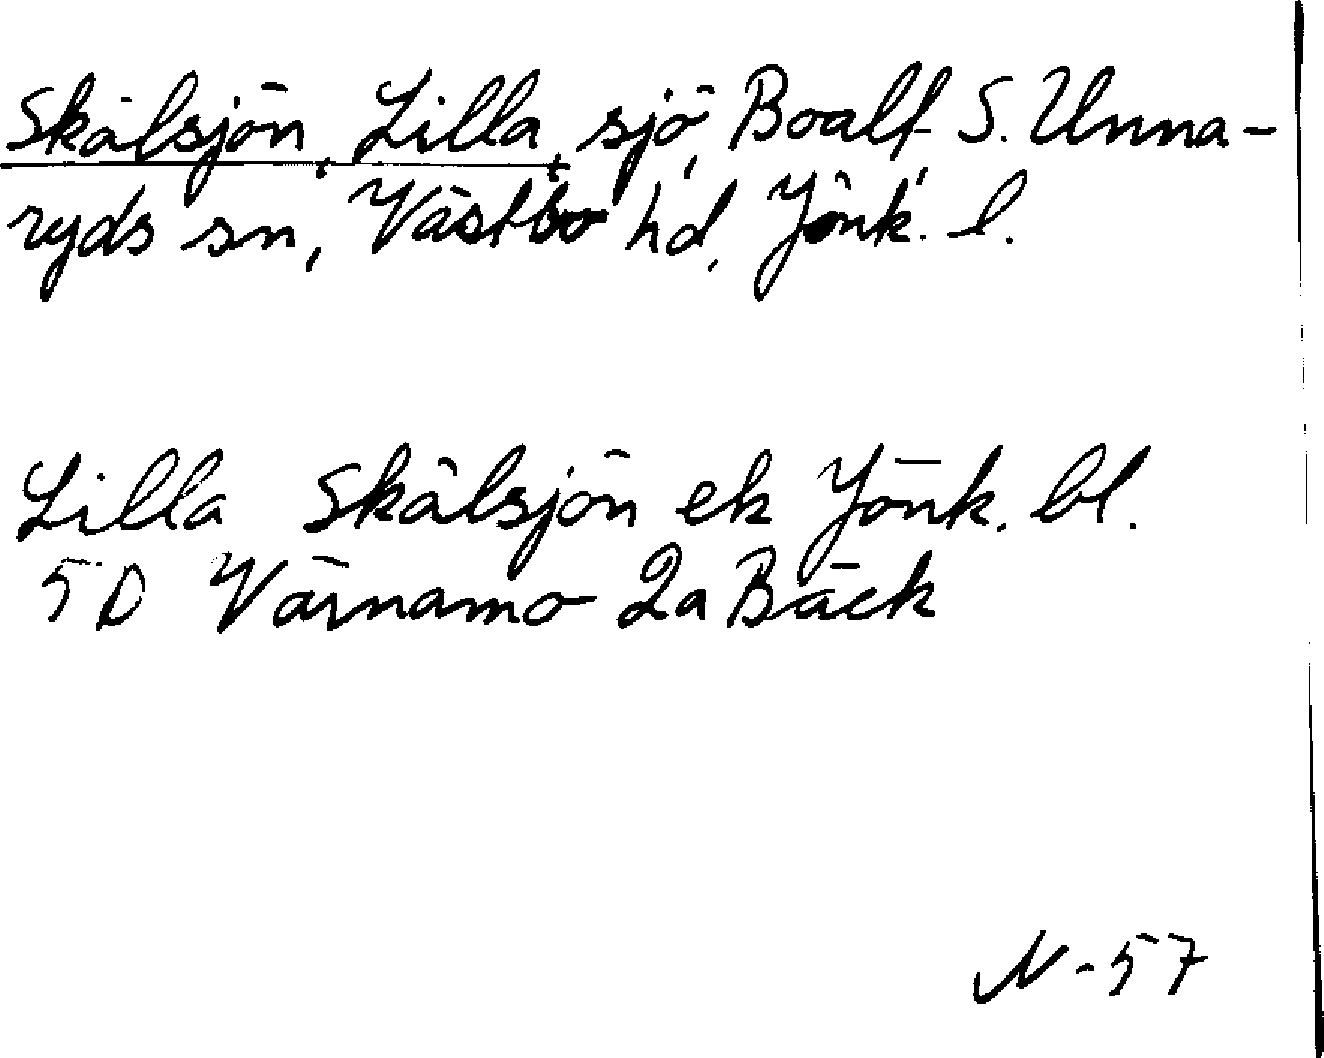 Skålsjön, Lilla, sjö, Boalt, S. Unna-
ryds sn, Västbo hd, Jönk. l.
Lilla Skålsjön ek Jönk. bl.
5D Värnamo 2a Bäck
N-57